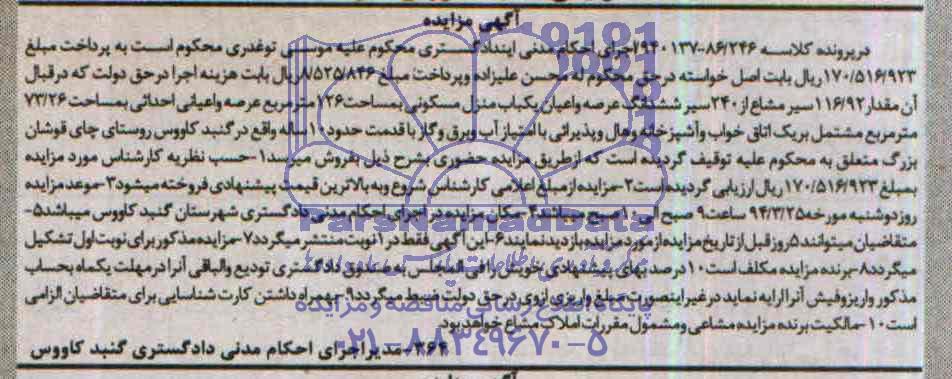 آگهی مزایده
درپرونده کلاسه ۹۴۰۱۳۷-۸۶/۲۴۶ اجرای احکام مدنی ایندادگستری محکوم علیه موسی توغدری محکوم است به پرداخت مبلغ
۱۷۰/۵۱۶/۹۲۳ ریال بابت اصل خواسته درحق محکوم له محسن علیزاده وپرداخت مبلغ ۸/۵۲۵/۸۴۶ ریال بابت هزینه اجرا درحق دولت که درقبال
آن مقدار ۱۱۶/۹۲ سیر مشاع از ۲۴۰ سیر ششدانگ عرصه واعیان یکباب منزل مسکونی بمساحت ۱۲۶ مترمربع عرصه واعیانی احداثی بمساحت ۷۳/۲۶
مترمربع مشتمل بریک اتاق خواب وآشپزخانه وهال وپذیرائی با امتیاز آب وبرق وگاز با قدمت حدود ۱۰ ساله واقع در گنبد کاووس روستای چای قوشان
بزرگ متعلق به محکوم علیه توقیف گردیده است که ازطریق مزایده حضوری بشرح ذیل بفروش میرسد ۱-حسب نظریه کارشناس مورد مزایده
بمبلغ ۱۷۰/۵۱۶/۹۲۳ ریال ارزیابی گردیده است ۲-مزایده از مبلغ اعلامی کارشناس شروع وبه بالاترین قیمت پیشنهادی فروخته میشود ۳-موعد مزایده
روز دوشنبه مورخه ۹۴/۳/۲۵ ساعت ۹ صبح الی ۱۰ صبح میباشد ۴-مکان مزایده در اجرای احکام مدنی دادگستری شهرستان گنبد کاووس میباشد ۵-
متقاضیان میتوانند ۵ روز قبل از تاریخ مزایده از مورد مزایده بازدید نمایند ۶-این آگهی فقط در ۱ نوبت منتشر میگردد ۷-مزایده مذکور برای نوبت اول تشکیل
میگردد ۸-برنده مزایده مکلف است ۱۰ درصد بهای پیشنهادی خویش را فی المجلس به صندوق دادگستری تودیع والباقی آنرا درمهلت یکماه بحساب
مذکور واریز وفیش آنرا ارایه نماید در غیر اینصورت مبلغ واریزی ازوی درحق دولت ضبط میگردد ۹-بهمراه داشتن کارت شناسایی برای متقاضیان الزامی
است ۱۰-مالکیت برنده مزایده مشاعی ومشمول مقررات املاک مشاع خواهد بود.
۲۶۴-مدیر اجرای احکام مدنی دادگستری گنبد کاووس
ParsNamadData
پایگاه اطلاع رسانی مناقصه و مزایده
۰۲۱-۸۸۳۴۹۶۷۰-۵